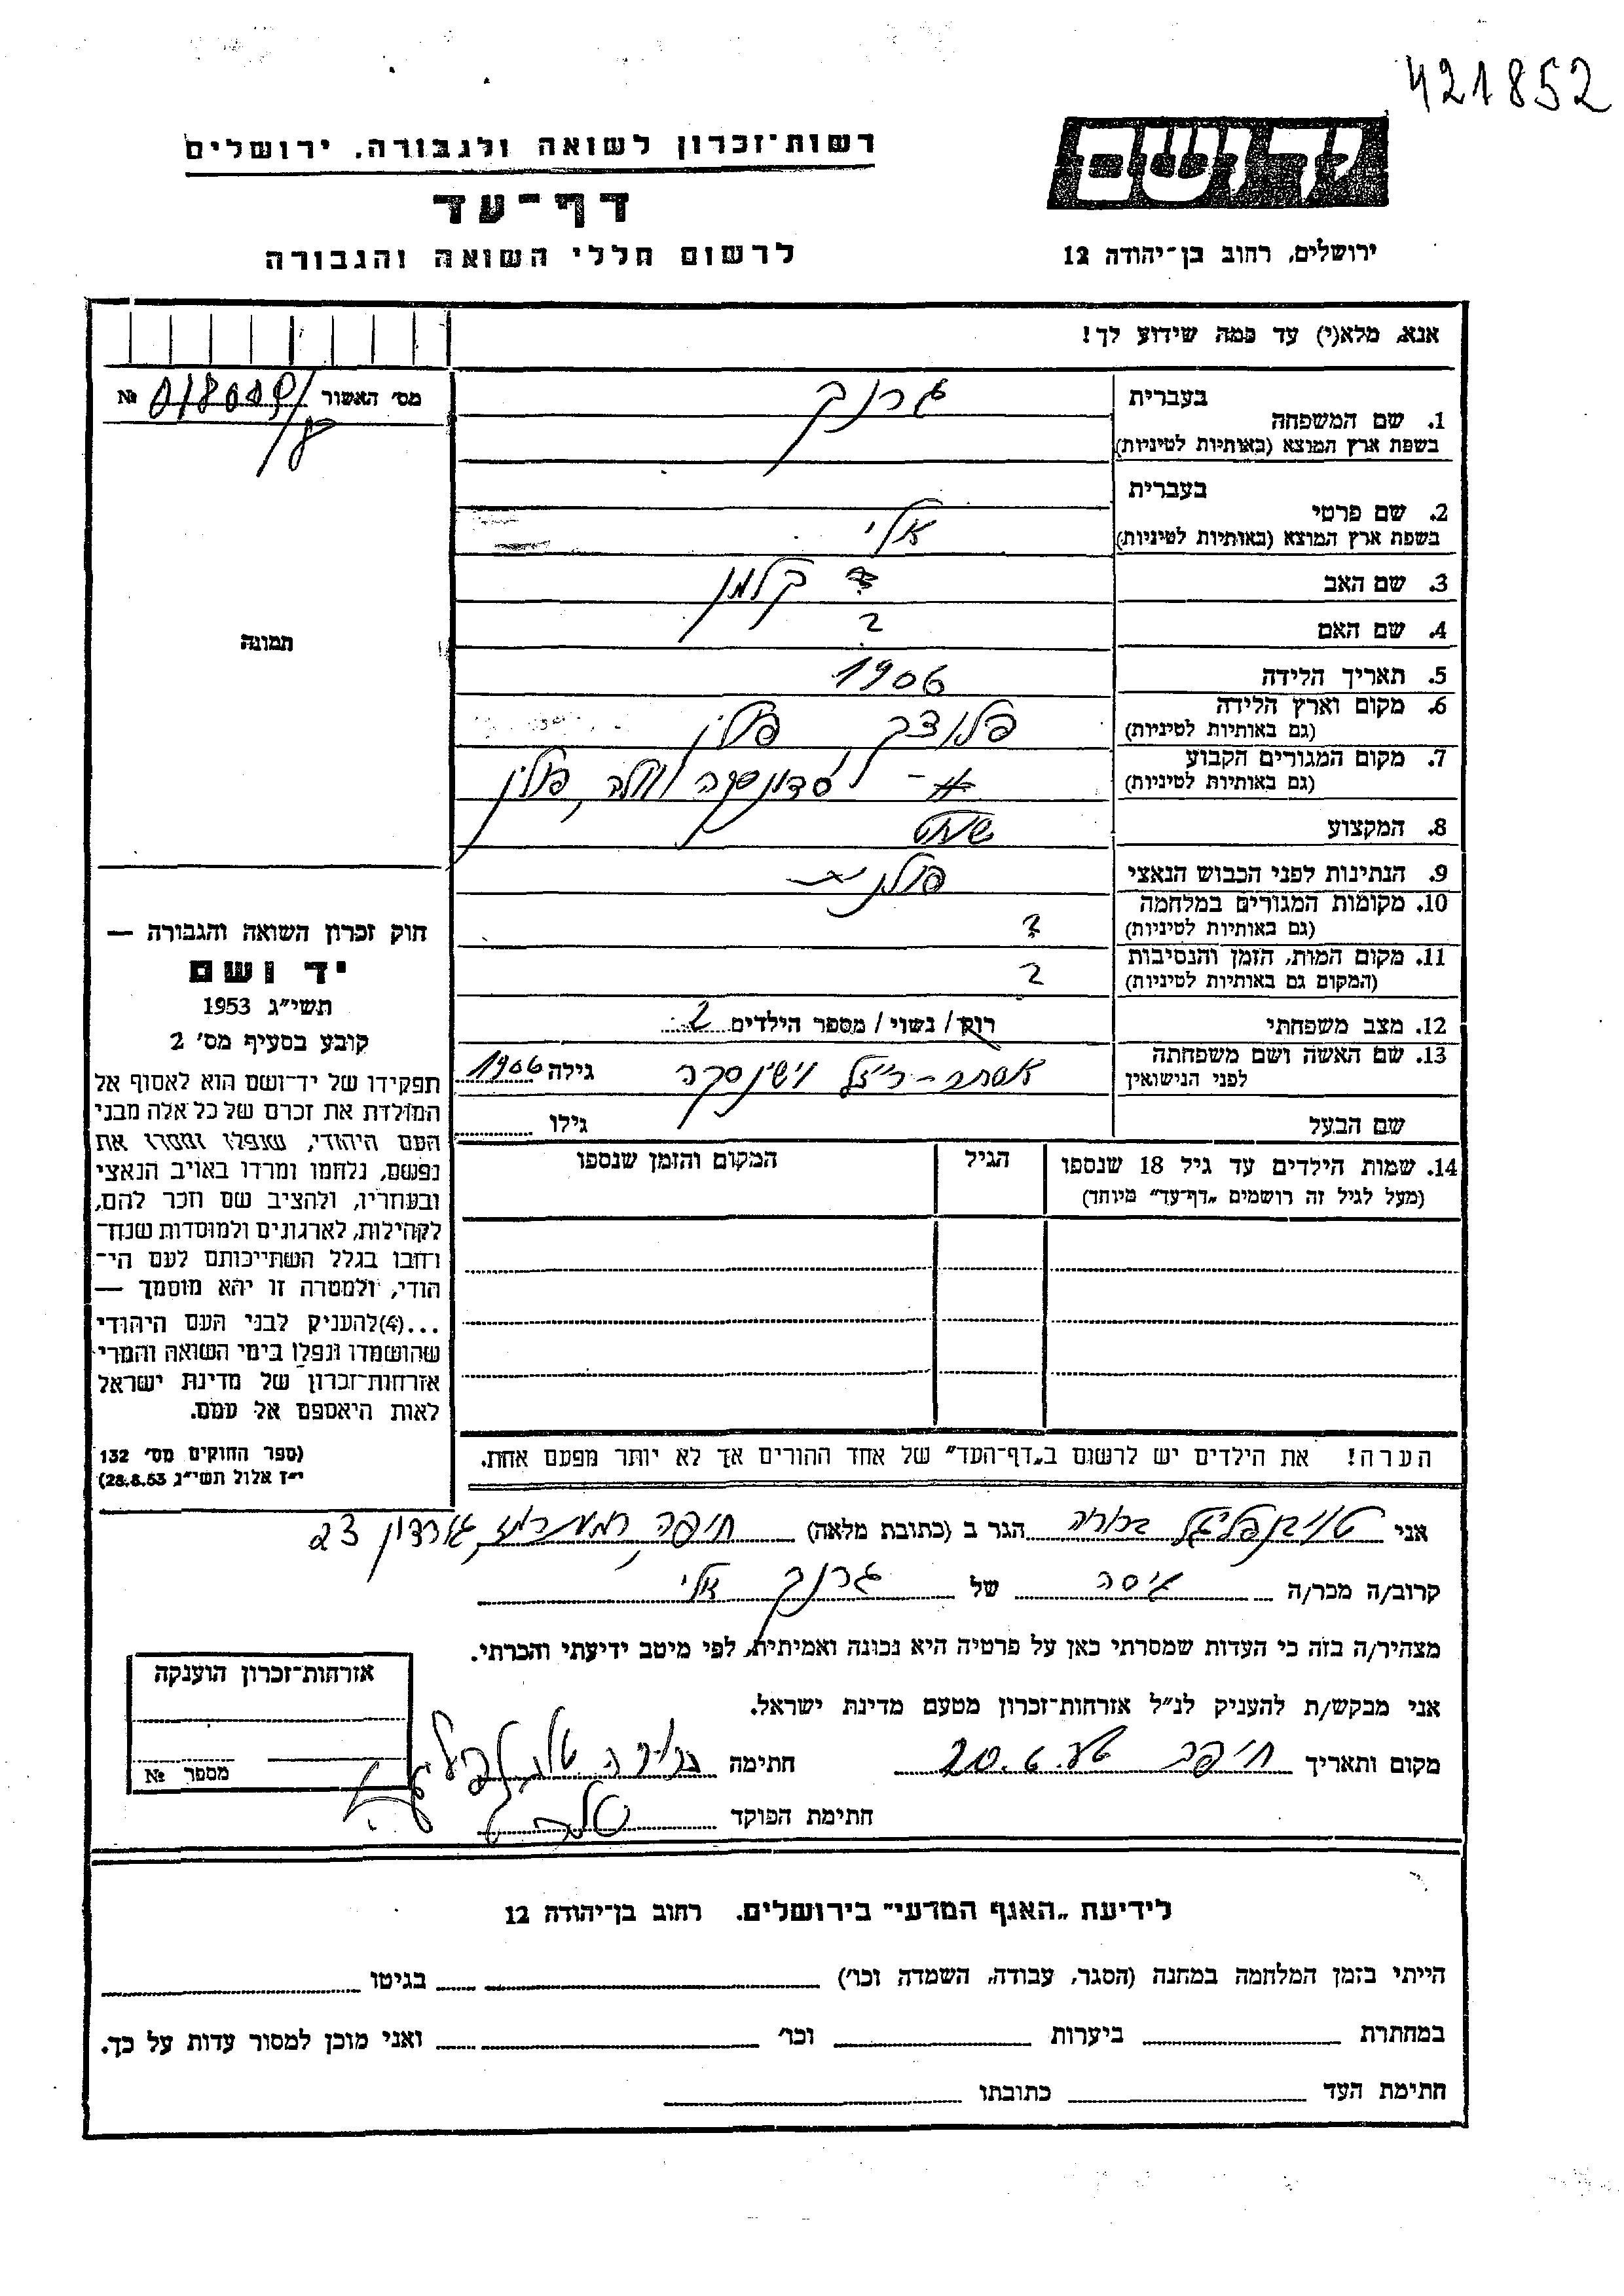 421852
יד ושם
רשות־זכרון לשואה ולגבורה. ירושלים
דף־עד
לרשום חללי השואה והגבורה
ירושלים, רחוב בן־יהודה 12
אנא, מלא(י) עד כמה שידוע לך!
מס׳ האשור № 
בעברית
1. שם המשפחה גרנק
בשפת ארץ המוצא (באותיות לטיניות)
בעברית
2. שם פרטי אלי
בשפת ארץ המוצא (באותיות לטיניות)
3. שם האב קלמן
4. שם האם ?
5. תאריך הלידה 1906
6. מקום וארץ הלידה פלוצק פולין
(גם באותיות לטיניות)
7. מקום המגורים הקבוע וולה, פולין
(גם באותיות לטיניות)
8. המקצוע שוחט
9. הנתינות לפני הכבוש הנאצי פולנית
10. מקומות המגורים במלחמה ?
(גם באותיות לטיניות)
11. מקום המות, הזמן והנסיבות ?
(המקום גם באותיות לטיניות)
12. מצב משפחתי רוק/ נשוי/ מספר הילדים 2
13. שם האשה ושם משפחתה לפני הנישואין אסתר-רייזל וישינסקה גילה 1906
שם הבעל גילו
14. שמות הילדים עד גיל 18 שנספו הגיל המקום והזמן שנספו
(מעל לגיל זה רושמים „דף־עד״ מיוחד)
תמונה
חוק זכרון השואה והגבורה —
יד ושם
תשי״ג 1953
קובע בסעיף מס׳ 2
תפקידו של יד־ושם הוא לאסוף אל
המולדת את זכרם של כל אלה מבני
העם היהודי, שנפלו ומסרו את
נפשם, נלחמו ומרדו באויב הנאצי
ובעוזריו, ולהציב שם וזכר להם,
לקהילות, לארגונים ולמוסדות שנח־
רחבו בגלל השתייכותם לעם הי־
הודי, ולמטרה זו יהא מוסמך —
...(4)להעניק לבני העם היהודי
שהושמדו ונפלו בימי השואה והמרי
אזרחות־זכרון של מדינת ישראל
לאות היאספם אל עמם.
(ספר החוקים מס׳ 132
י״ז אלול תשי״ג 28.8.53)
הערה! את הילדים יש לרשום ב„דף־העד״ של אחד ההורים אך לא יותר מפעם אחת.
אני טויבנפליגל ברוריה הגר ב (כתובת מלאה) חיפה, גורדון 23
קרוב/ה מכר/ה גיסה של גרנק אלי
מצהיר/ה בזה כי העדות שמסרתי כאן על פרטיה היא נכונה ואמיתית, לפי מיטב ידיעתי והכרתי.
אני מבקש/ת להעניק לנ״ל אזרחות־זכרון מטעם מדינת ישראל.
מקום ותאריך חיפה 20.6. חתימה
חתימת הפוקד
אזרחות־זכרון הוענקה
מספר №
לידיעת „האגף המדעי״ בירושלים. רחוב בן־יהודה 12
הייתי בזמן המלחמה במחנה (הסגר, עבודה, השמדה וכו׳) בגיטו
במחתרת ביערות וכו׳ ואני מוכן למסור עדות על כך.
חתימת העד כתובתו